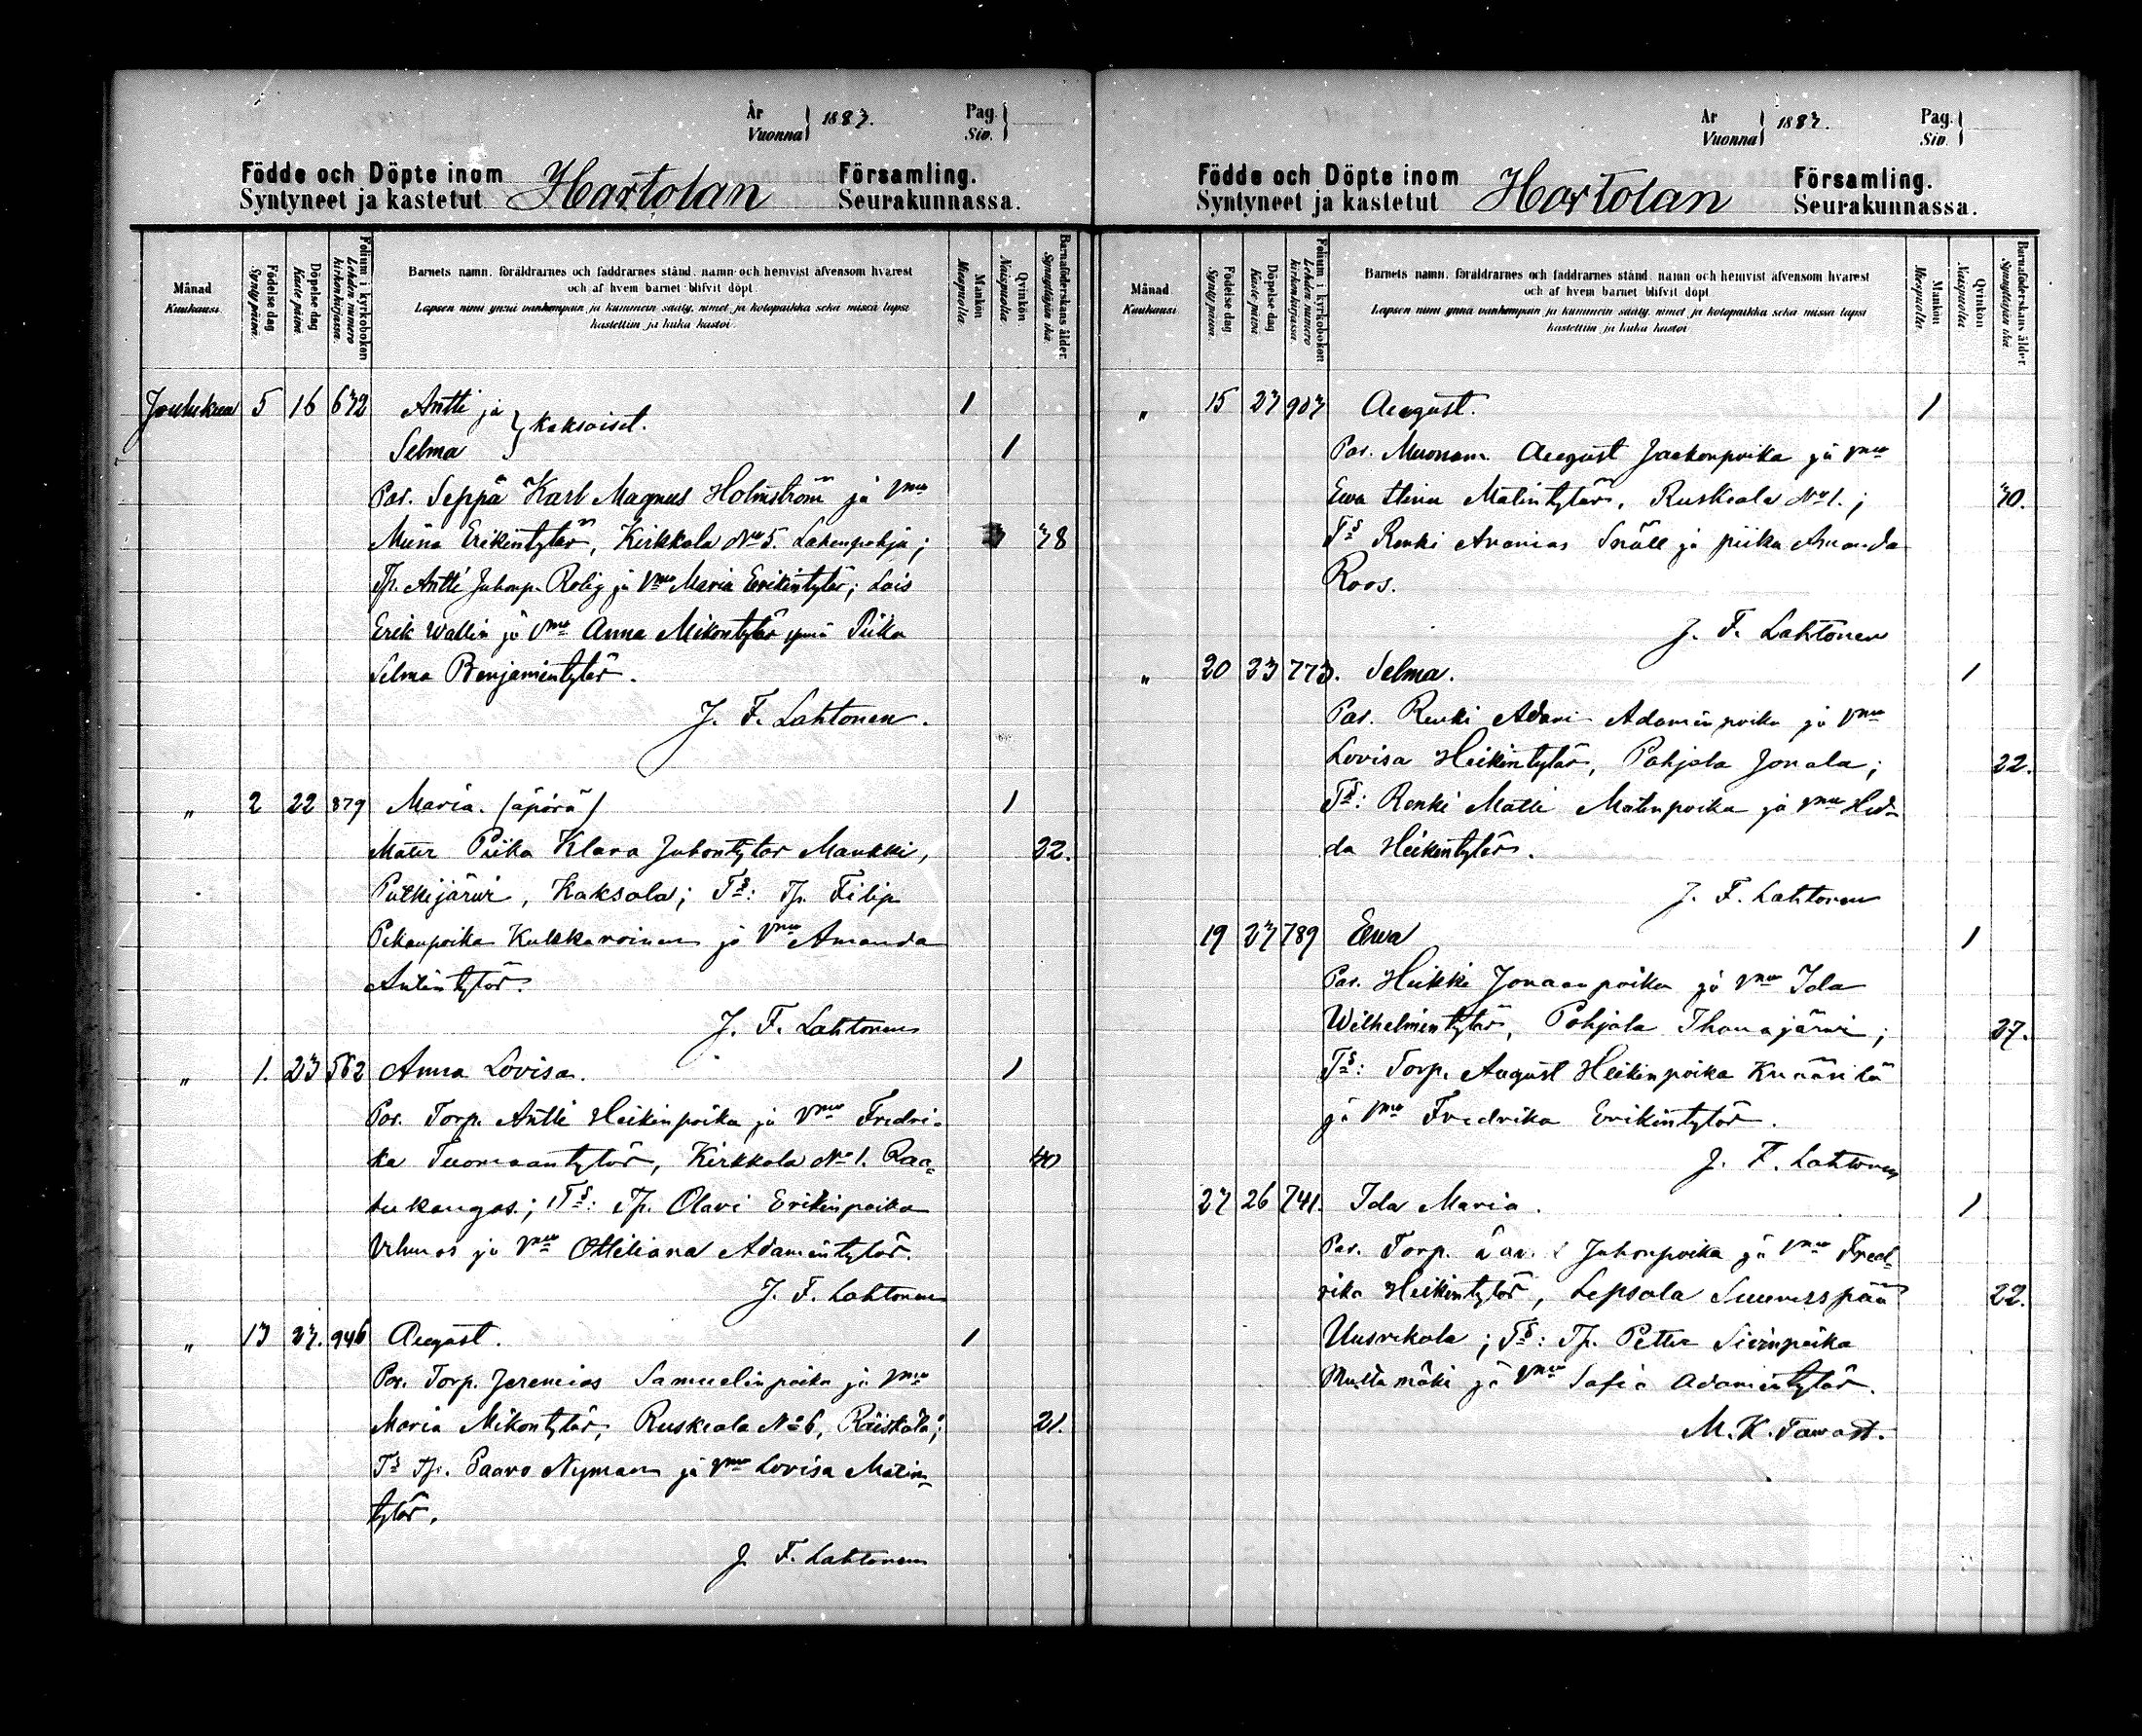 År
Vuonna } 1883.
Pag.
Siv. }
Födde och Döpte inom
Syntyneet ja kastetut Hartolan Församling.
Seurakunnassa.
Månad
Kuukausi.
Födelse dag
Synty päivä.
Döpelse dag
Kaste päivä.
Folium i kyrkobokon
Lehden numero
kirkonkirjassa.
Barnets namn, föräldrarnes och faddrarnes stånd, namn och hemvist äfvensom hvarest
och af hvem barnet blifvit döpt.
Lapsen nimi ynnä vanhempain ja kummein sääty, nimet ja kotopaikka sekä missä lapsi
kastettiin ja kuka kastoi.
Mankön
Miespuolia.
Qvinkön
Naispuolia.
Barnaföderskans ålder.
Synnyttäjän ikä.
Joulukuu 5 16 632 Antti ja } Kaksoiset. 1
Selma 1
Par. Seppä Karl Magnus Holmström ja Vmo
Miina Erikintytär, Kirkkola No 5. Lahenpohja; 38
Tp. Antti Juhonp. Rolig ja Vmo Maria Erikintytär; Lois
Erik Wallin ja Vmo Anna Mikontytär ynnä Piika
Selma Benjamintytär.
J. F. Lahtonen.
" 2 22 879 Maria. (äpärä) 1
Mater Piika Klara Juhontytär Maukki, 22.
Putkijärwi, Kaksola; Ts: Tp. Filip
Pekanpoika Kukkaroinen ja Vmo Amanda
Antintytär.
J. F. Lahtonen
" 1. 23 562 Anna Lovisa. 1
Par. Torp. Antti Heikinpoika ja Vmo Fredri-
ka Tuomaantytär, Kirkkola No 1. Raa- 40
tukangas; Ts: Tp. Olavi Erikinpoika
ja Vmo Ottiliana Adamintytär.
J. F. Lahtonen
" 13 23. 946 August. 1
Par. Torp. Jeremias Samuelinpoika ja Vmo
Maria Mikontytär, Ruskeala No 6, Räiskälä; 21.
Ts Tp. Paavo Nyman ja Vmo Lovisa Matin-
tytär.
J. F. Lahtonen
År
Vuonna } 1883.
Pag.
Siv. }
Födde och Döpte inom
Syntyneet ja kastetut Hartolan Församling.
Seurakunnassa.
Månad
Kuukausi
Födelse dag
Synty päivä.
Döpelse dag
Kaste päivä.
Folium i kyrkobokon
Lehden numero
kirkonkirjassa.
Barnets namn, föräldrarnes och faddrarnes stånd, namn och hemvist äfvensom hvarest
och af hvem barnet blifvit döpt.
Lapsen nimi ynnä vanhempain ja kummein sääty, nimet ja kotopaikka sekä missä lapsi
kastettiin ja kuka kastoi.
Mankön
Miespuolia.
Qvinkön
Naispuolia.
Barnaföderskans ålder.
Synnyttäjän ikä.
" 15 23 903 August. 1
Par. Muonam. August Jaakonpoika ja Vmo
Ewa Stina Matintytär, Ruskeala No 1.; 30.
Ts Renki Ananias Snäll ja piika Amanda
Roos.
J. F. Lahtonen
" 20 23 773. Selma. 1
Par. Renki Adam Adaminpoika ja Vmo
Lovisa Heikintytär, Pohjola Jonala; 22.
Ts: Renki Matti Matinpoika ja Vmo Hed-
da Heikintytär.
J. F. Lahtonen
19 23 789 Ewa 1
Par. Heikki Jonaanpoika ja Vmo Ida
Wilhelmintytär, Pohjola Ihanajärwi; 27.
Ts: Torp. August Heikinpoika
ja Vmo Fredrika Erikintytär.
J. F. Lahtonen
23 26 741. Ida Maria. 1
Par. Torp. Juhonpoika ja Vmo Fred-
rika Heikintytär, Lepsala 22.
Uusikola; Ts: Tp. Petter
Multamäki ja Vmo Sofia Adamintytär.
M. K. Tawast.